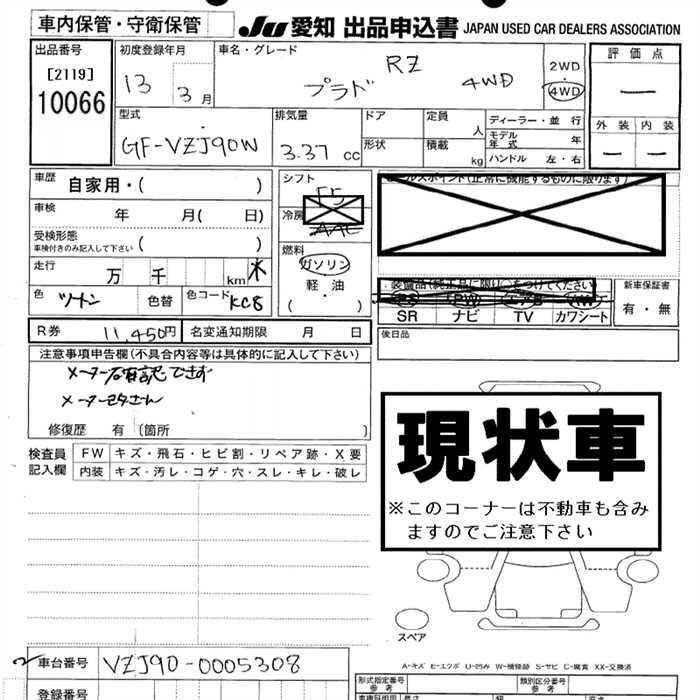 車内保管・守衛保管
JU 愛知 出品申込書 JAPAN USED CAR DEALERS ASSOCIATION
出品番号
[2119]
10066
初度登録年月
13 3月
車名・グレード
プラド RZ 4WD
2WD
・
4WD
評価点
—
外装 内装
— —
型式
GF-VZJ90W
排気量
3.37 cc
ドア
形状
定員 人
積載 kg
ディーラー・並 行
モデル年式 年
ハンドル 左・右
車歴 自家用・( )
車検 年 月( 日)
受検形態
車検付きのみ記入して下さい ( )
走行 万 千 km
色 ツートン 色替 色コード KC8
シフト
F5
冷房
AAC
燃料
ガソリン
・
軽・油
( )
セールスポイント(正常に機能するものに限ります)
装備品(純正品に限り○をつけてください)
PS PW エアB AW
SR ナビ TV カワシート
新車保証書
有・無
後日品
R券 11,450円 名変通知期限 月 日
注意事項申告欄(不具合内容等は具体的に記入して下さい)
メーター確認できず
修復歴 有(箇所 )
検査員
記入欄
FW キズ・飛石・ヒビ割・リペア跡・X要
内装 キズ・汚レ・コゲ・穴・スレ・キレ・破レ
現状車
※このコーナーは不動車も含み
ますのでご注意下さい
スペア
A-キズ E-エクボ U-凹み W-補修跡 S-サビ C-腐食 XX-交換済
車台番号 VZJ90-0005308
登録番号
形式指定番号
参考
類別区分番号
参考